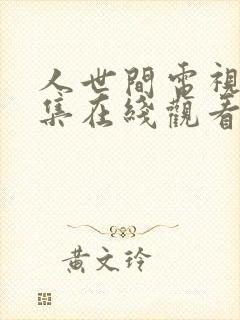 人世間電視
集在綫觀看
黃文玲